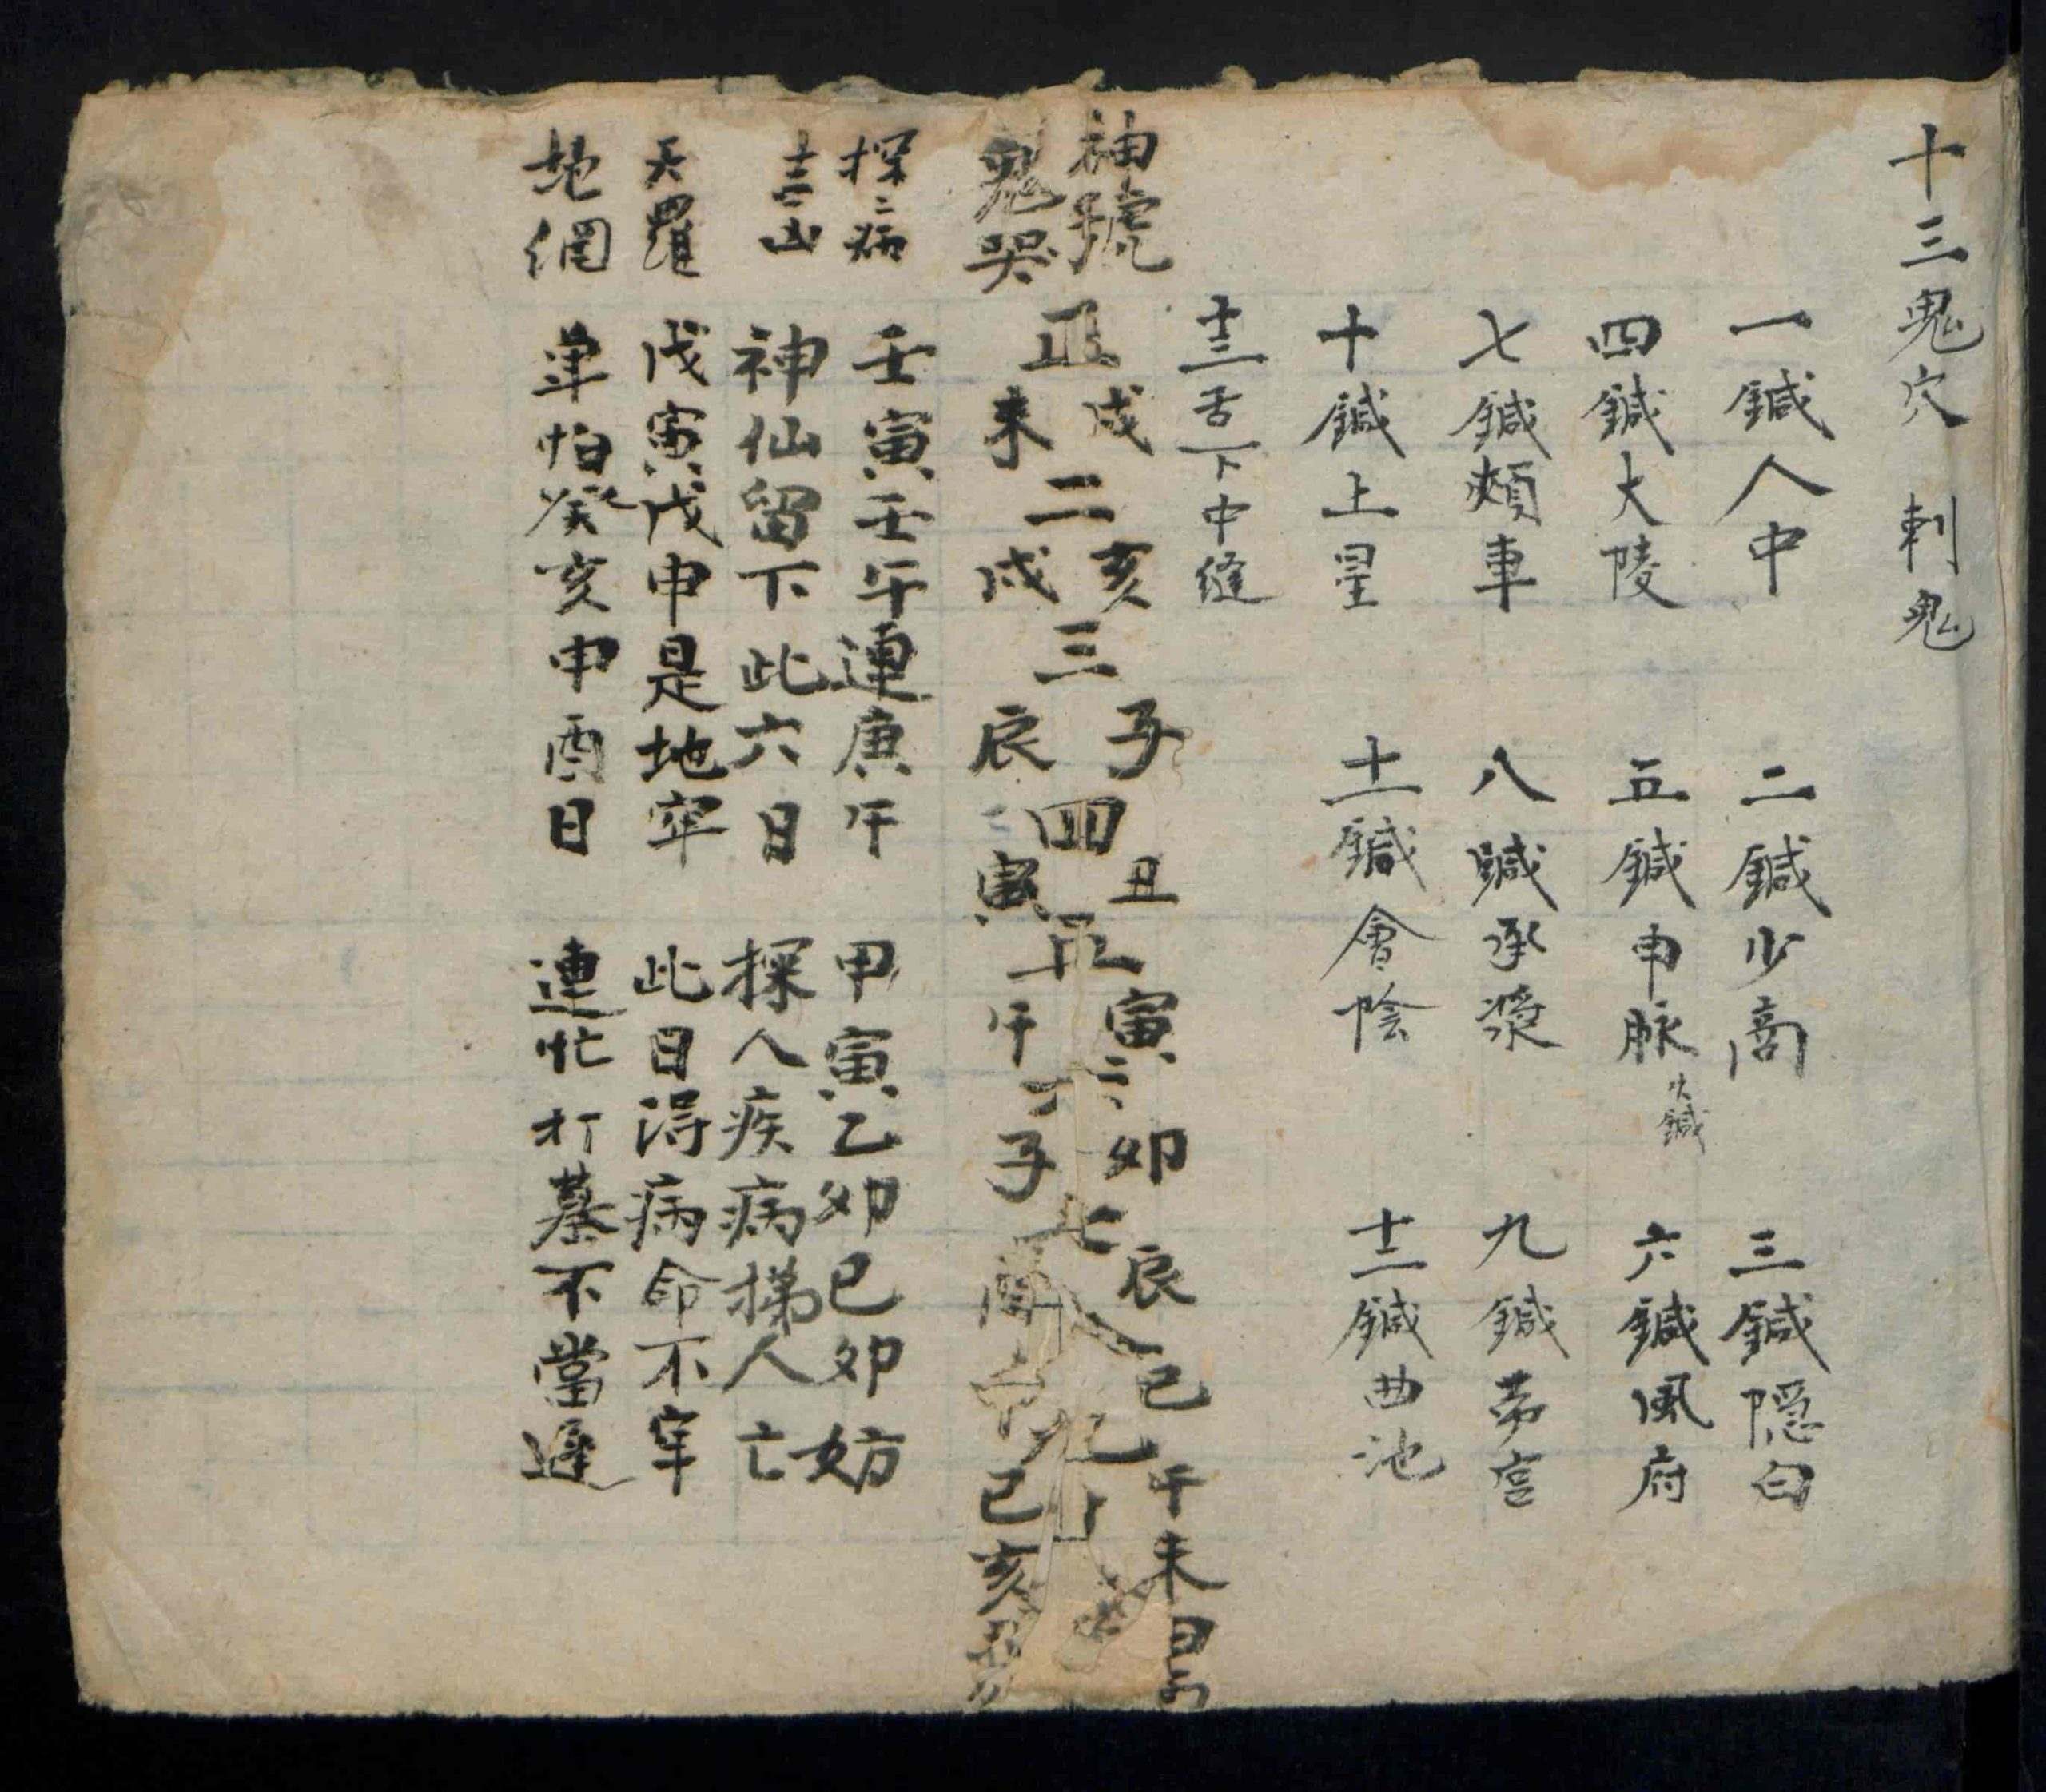 十三鬼穴 刺鬼
一鍼人中 二鍼少商 三鍼隠白
四鍼大陵 五鍼申脉 火鍼 六鍼風府
七鍼頰車 八鍼承漿 九鍼劳宮
十鍼上星 十一鍼會陰 十二鍼曲池
十三舌下中縫
神號 戌 亥 子 丑 寅 卯 辰 巳 午 未
正 二 三 四 五 六 七 八 九 十
鬼哭 未 戌 辰 寅 午 子 酉 申 巳 亥
探病 壬寅壬午連庚午 甲寅乙卯己卯妨
吉凶 神仙留下此六日 探人疾病揥人亡
天羅 戊寅戊申是地牢 此日淂病命不牢
地網 单怕癸亥申酉日 連忙打墓不當遲